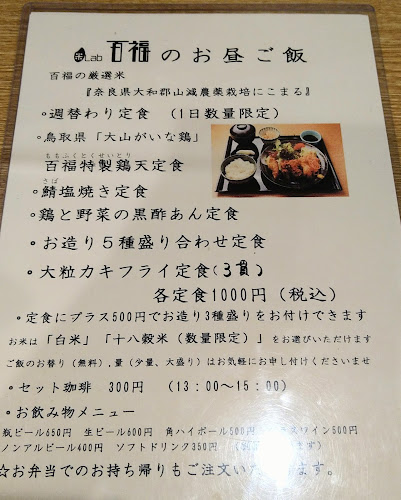 米Lab 百福のお昼ご飯
百福の厳選米
『奈良県大和郡山減農薬栽培にこまる』
・週替わり定食 (1日数量限定)
・鳥取県「大山がいな鶏」
ももふくとくせいとり
百福特製鶏天定食
さば
・鯖塩焼き定食
・鶏と野菜の黒酢あん定食
・お造り5種盛り合わせ定食
・大粒カキフライ定食(3貫)
各定食1000円(税込)
・定食にプラス500円でお造り3種盛りをお付けできます
お米は「白米」「十八穀米(数量限定)」をお選びいただけます
ご飯のお替り(無料),量(少量、大盛り)はお気軽にお申し付けくださいませ
・セット珈琲 300円 (13:00〜15:00)
・お飲み物メニュー
瓶ビール650円 生ビール600円 角ハイボール500円 スワイン500円
ノンアルビール400円 ソフトドリンク350円 ます)
☆お弁当でのお持ち帰りもご注文いた ます。